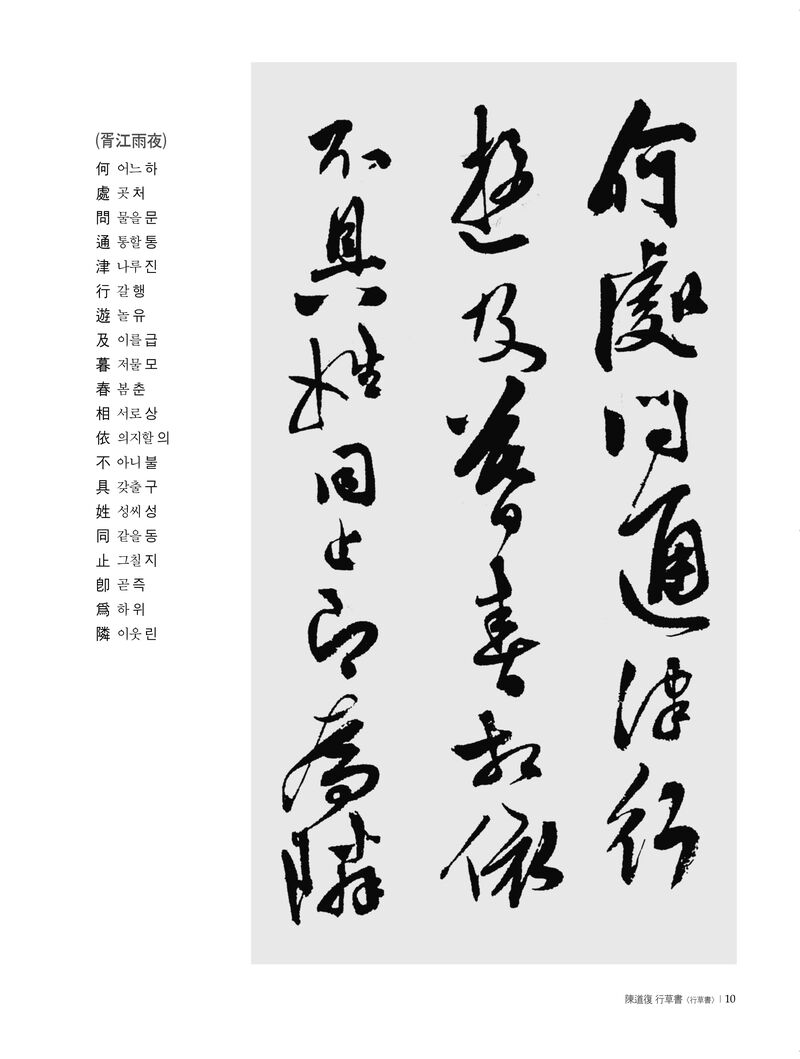 (胥江雨夜)
何 어느 하
處 곳 처
問 물을 문
通 통할 통
津 나루 진
行 갈 행
遊 놀 유
及 이를 급
暮 저물 모
春 봄 춘
相 서로 상
依 의지할 의
不 아니 불
具 갖출 구
姓 성씨 성
同 같을 동
止 그칠 지
卽 곧 즉
爲 하 위
隣 이웃 린
何處問通津行
遊及暮春相依
不具姓同止卽爲隣
陳道復 行草書 (行草書) | 10